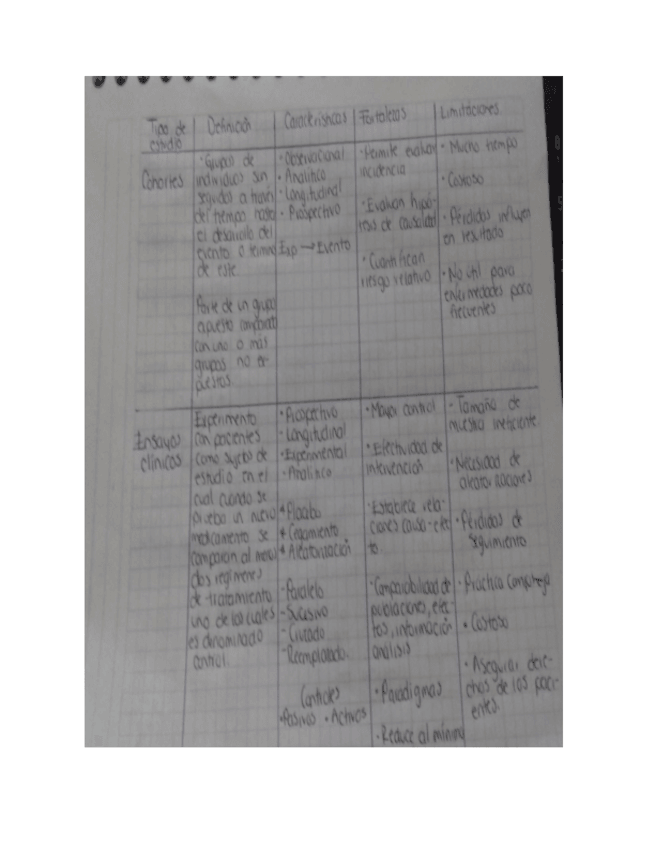 Tipo de estudio
Definición
Características
Fortalezas
Limitaciones
Cohortes
· Grupos de
individuos son
seguidos a través
del tiempo hasta
el desarrollo del
evento o término
de este.
Parte de un grupo
con uno o más
grupos no ex-
puestos.
· Observacional
· Analítico
· Longitudinal
· Prospectivo
Exp → Evento
· Permite evaluar
incidencia
· Evaluan hipó-
tesis de causalidad
· Cuantifican
riesgo relativo
· Mucho tiempo
· Costoso
· Pérdidas influyen
en resultado
· No util para
enfermedades poco
frecuentes
Ensayos
clínicos
Experimento
con pacientes
como sujeto de
estudio en el
cual cuando se
prueba un nuevo
medicamento se
comparan al menos
dos regímenes
de tratamiento
uno de los cuales
es denominado
control.
· Prospectivo
- Longitudinal
· Experimental
· Analítico
* Placebo
* Cegamiento
* Aleatorización
- Paralelo
- Sucesivo
- Cruzado
- Reemplazado.
Controles
· Pasivos · Activos
· Mayor control
· Efectividad de
intervención
· Establece rela-
ciones causa-efec
to
· Comparabilidad de
poblaciones, efec-
tos, información
análisis
· Paradigmas
· Reduce al mínimo
- Tamaño de
muestra ineficiente
· Necesidad de
· Pérdidas de
seguimiento
· Práctica compleja
· Costoso
· Asegurar dere-
chos de los paci-
entes.